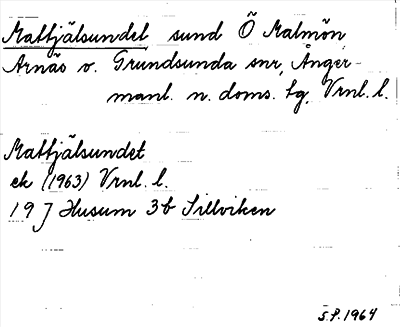 Mattjälsundet sund Ö Malmön
Arnäs o. Grundsunda snr, Ånger-
manl. n. doms. tg. Vrnl. l.
Mattjälsundet
ek (1963) Vrnl. l.
19 J Husum 3b Sillviken
S.P. 1964